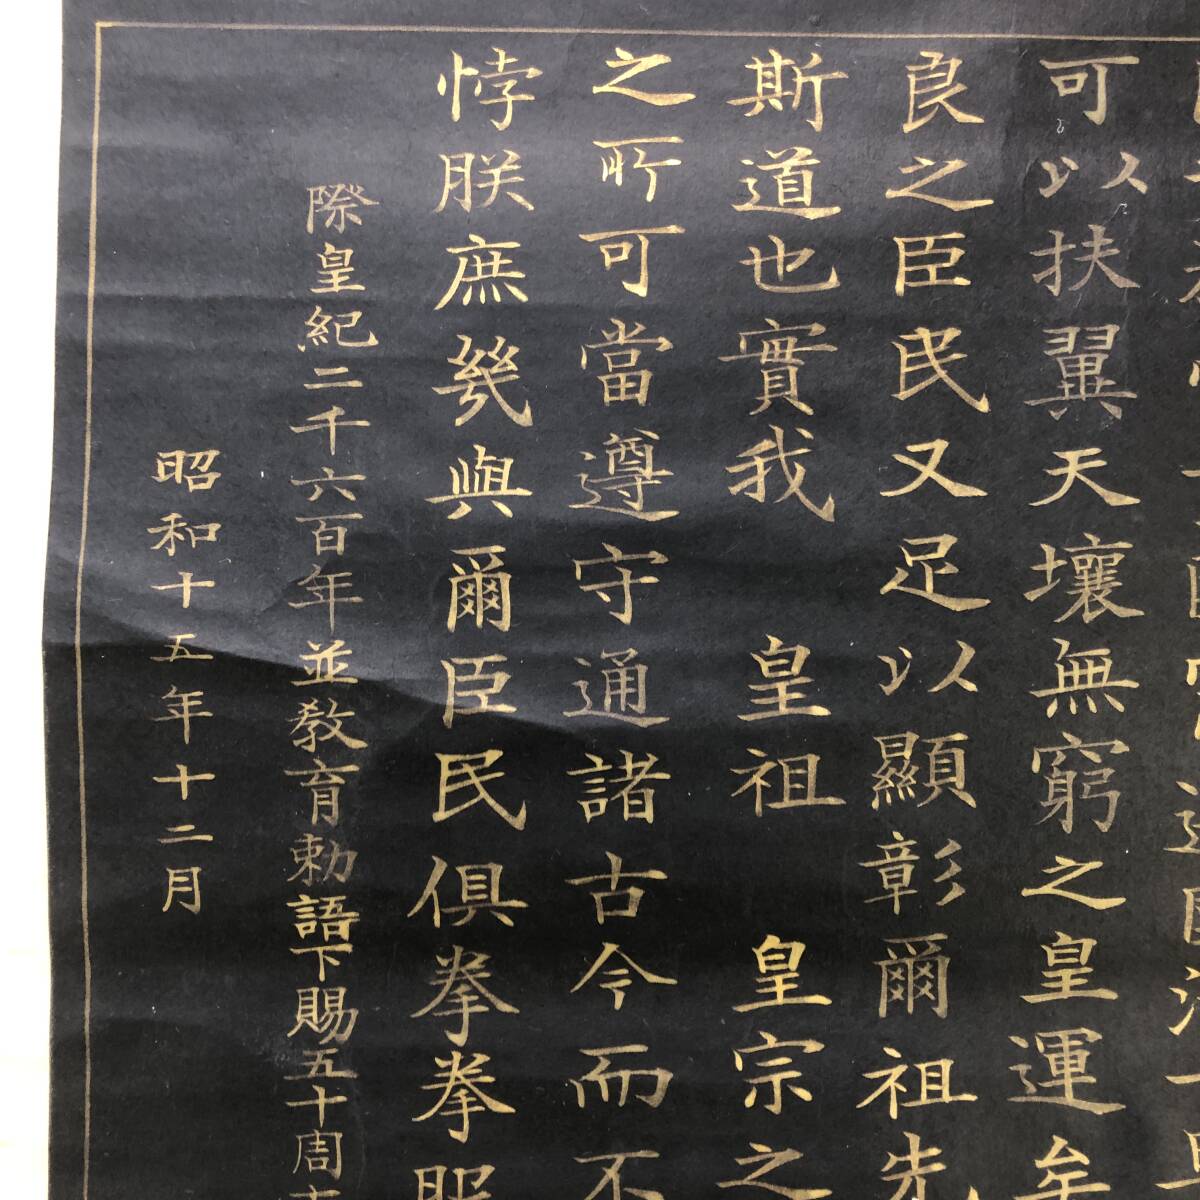 可以扶翼天壤無窮之皇運
良之臣民又足以顯彰爾祖先
斯道也實我 皇祖 皇宗之
之所可當遵守通諸古今而不
悖朕庶幾與爾臣民俱拳拳服
際皇紀二千六百年並教育勅語下賜五十周
昭和十五年十二月